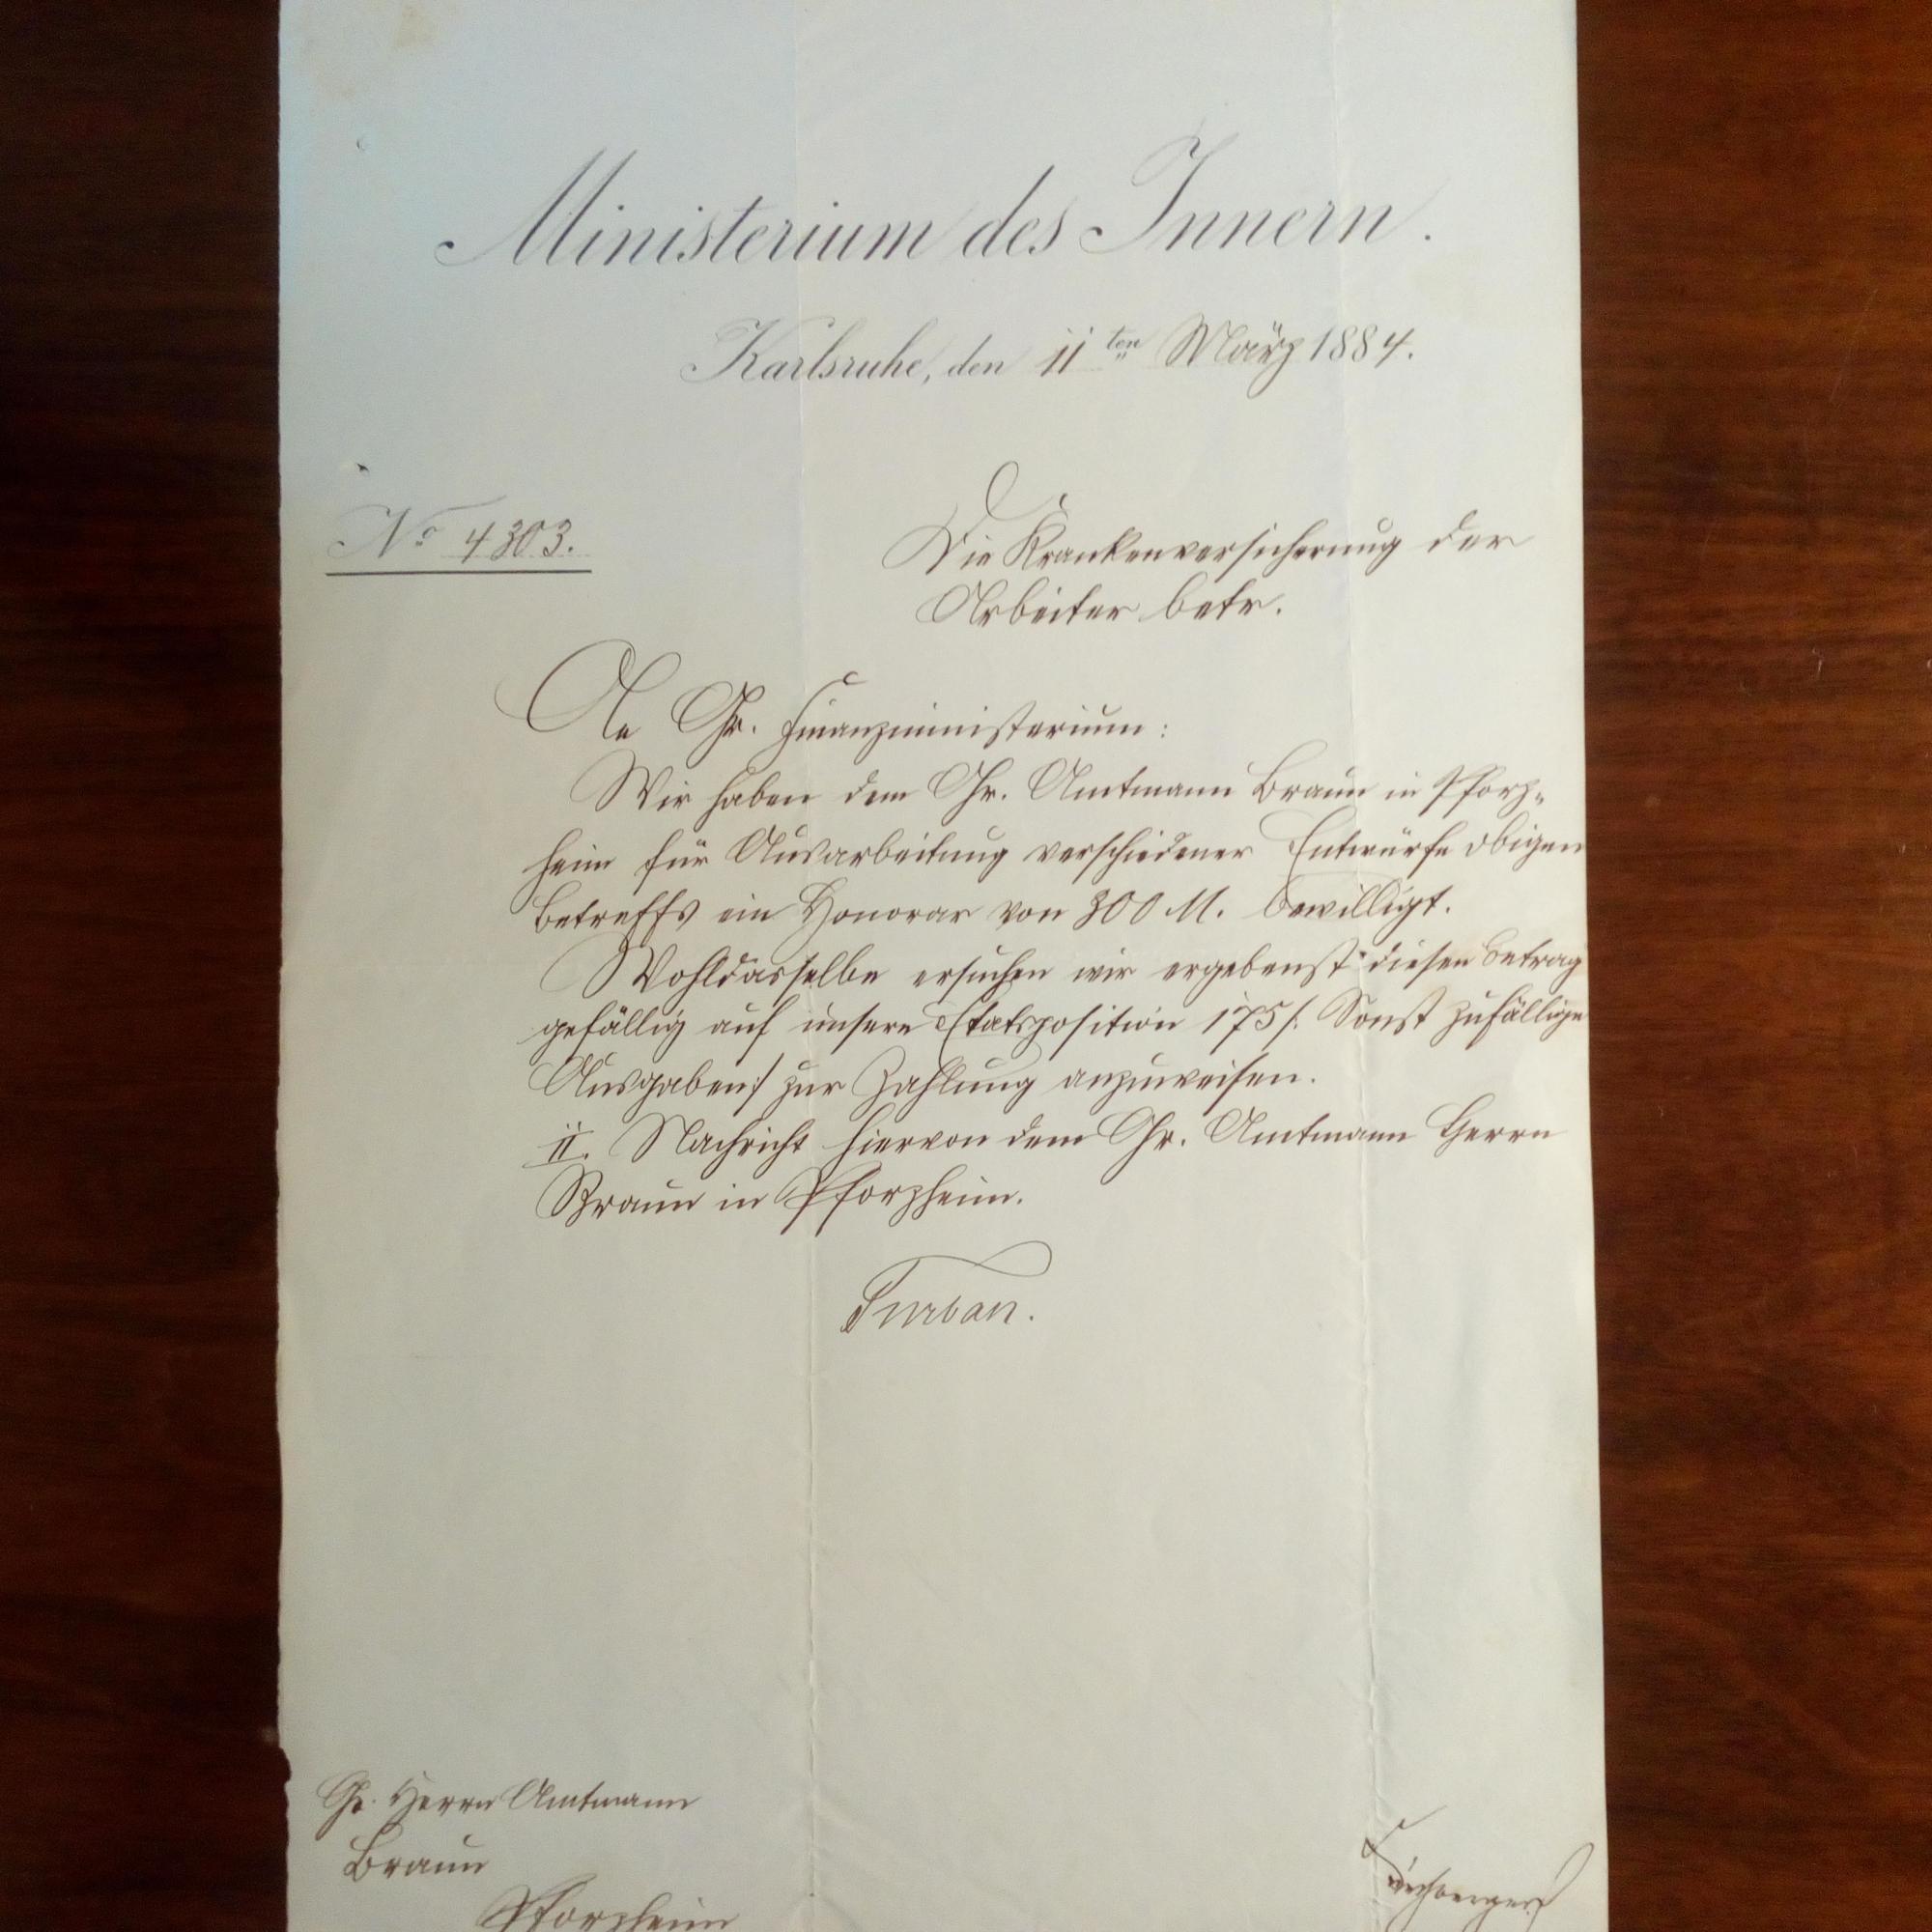 Ministerium des Innern.
Karlsruhe, den 11ten März 1884.
No 4303.
Die Krankenversicherung der
Arbeiter betr.
An Gr. Finanzministerium:
Wir haben dem Gr. Amtmann Braun in Pforz-
heim für Ausarbeitung verschiedener Entwürfe obigen
Betreffs ein Honorar von 300 M. bewilligt.
Wohldasselbe ersuchen wir ergebenst diesen Betrag
gefällig auf unsere Etatsposition 175 /: Sonst zufällige
Ausgaben :/ zur Zahlung anzuweisen.
II. Nachricht hiervon dem Gr. Amtmann Herrn
Braun in Pforzheim.
Turban.
Gr. Herrn Amtmann
Braun
Pforzheim